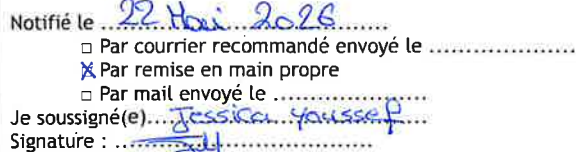 Notifié le 22 Mai 2026
□ Par courrier recommandé envoyé le ....................
☒ Par remise en main propre
□ Par mail envoyé le ......................
Je soussigné(e)....Jessica Youssef....
Signature : ......................................